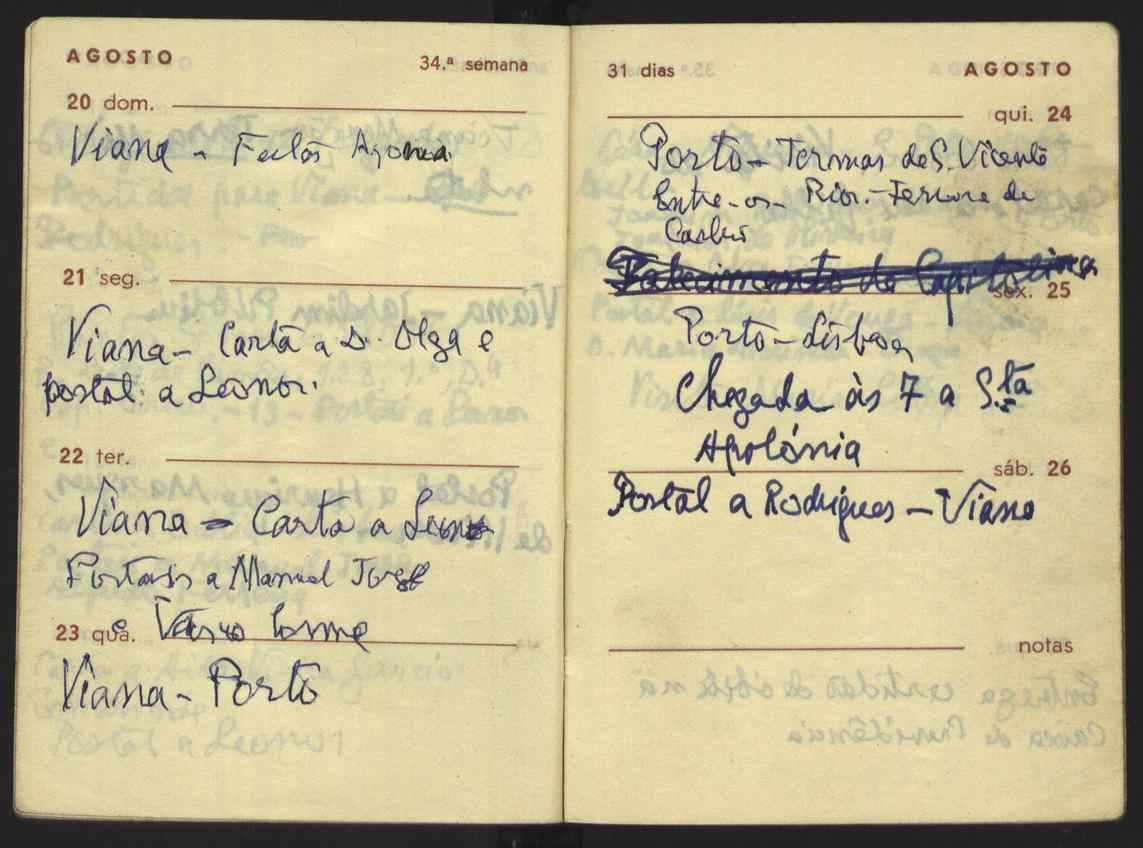 AGOSTO 34.ª semana
20 dom.
Viana - Festas Agonia
21 seg.
Viana - Carta a D. Olga e
postal a Leonor.
22 ter.
Viana - Carta a Leonor
Postais a Manuel Jorge
Vasco
23 qua.
Viana - Porto
31 dias AGOSTO
qui. 24
Porto - Termas de S. Vicente
Entre-os-Rios. - de
Falecimento de Capitolina
sex. 25
Porto - Lisboa
Chegada às 7 a S.ta
Apolónia
sáb. 26
Postal a Rodrigues - Viana
notas